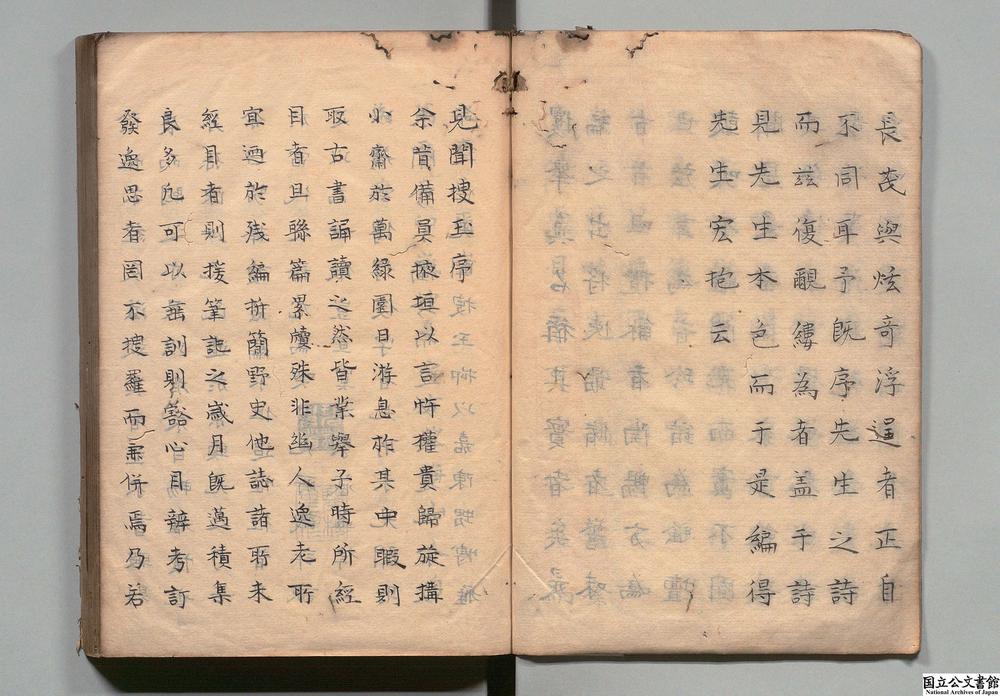 長茂與炫奇浮逞者正自
不同耳予既序先生之詩
而茲復覼縷為者盖于詩
見先生本色而于是編得
先生宏抱云
見聞搜玉序
余昔備員掖垣以言忤權貴歸旋搆
小齋於萬綠園日游息於其中暇則
取古書誦讀之然皆業舉子時所經
目者且聯篇累牘殊非幽人逸老所
宜迺於殘編折簡野史他誌諸所未
經目者則援筆記之歲月既邁積集
良多凡可以垂訓則豁心目辨考訂
發逸思者罔不搜羅而兼併焉乃若
国立公文書館
National Archives of Japan